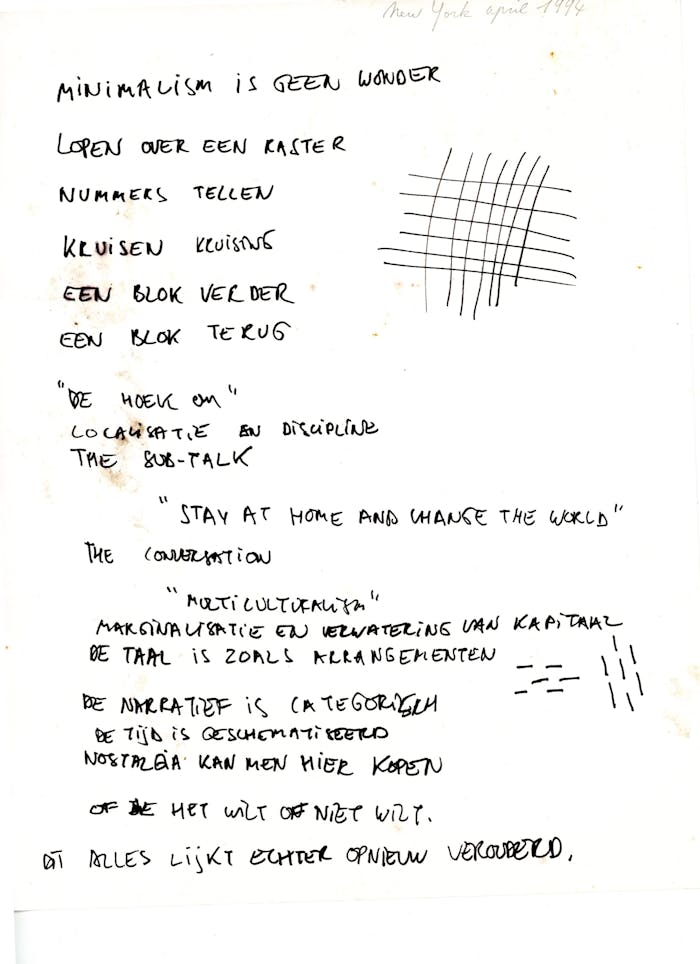 New York april 1994
MINIMALISM IS GEEN WONDER
LOPEN OVER EEN RASTER
NUMMERS TELLEN
KRUISEN KRUISING
EEN BLOK VERDER
EEN BLOK TERUG
"DE HOEK OM"
LOCALISATIE EN DISCIPLINE
THE SUB-TALK
"STAY AT HOME AND CHANGE THE WORLD"
THE CONVERSATION
"MULTICULTURALISM"
MARGINALISATIE EN VERWATERING VAN KAPITAAL
DE TAAL IS ZOALS ARRANGEMENTEN
DE NARRATIEF IS CATEGORISCH
DE TIJD IS GESCHEMATISEERD
NOSTALGIA KAN MEN HIER KOPEN
OF JE HET WILT OF NIET WILT.
DIT ALLES LIJKT ECHTER OPNIEUW VEROUDERD.